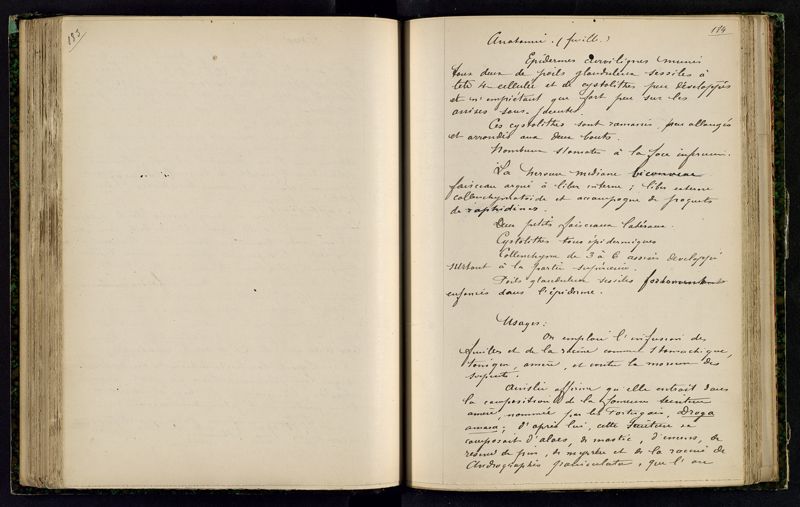 183
174
Anatomie. (feuille.)
Epidermes curvilignes munis
tous deux de poils glanduleux sessiles à
tête 4-cellulée et de cystolithes peu développés
et n'empiétant que fort peu sur les
assises sous-jacentes.
Ces cystolithes sont ramassés, peu allongés
et arrondis aux deux bouts.
Nombreux stomates à la face inférieure.
La nervure médiane biconvexe
faisceau arqué à liber interne; liber externe
collenchymatoïde et accompagné de paquets
de raphidines.
Deux petits faisceaux latéraux.
Cystolithes tous épidermiques
Collenchyme de 3 à 6 assises développé
surtout à la partie supérieure.
Poils glanduleux sessiles fortement
enfoncés dans l'épiderme.
Usages:
On emploie l'infusion des
feuilles et de la racine comme stomachique,
tonique, amère, et contre la morsure des
serpents.
Ainslie affirme qu'elle entrait dans
la composition de la fameuse teinture
amère, nommée par les Portugais, Droga
amara; d'après lui, cette teinture se
composait d'aloès, de mastic, d'encens, de
résine de pin, de myrrhe et de la racine de
Andrographis paniculata, que l'on